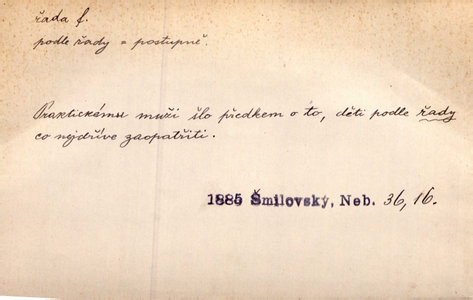 řada f.
podle řady = postupně.
Praktickému muži šlo předkem o to, děti podle řady
co nejdříve zaopatřiti.
1885 Šmilovský, Neb. 36, 16.